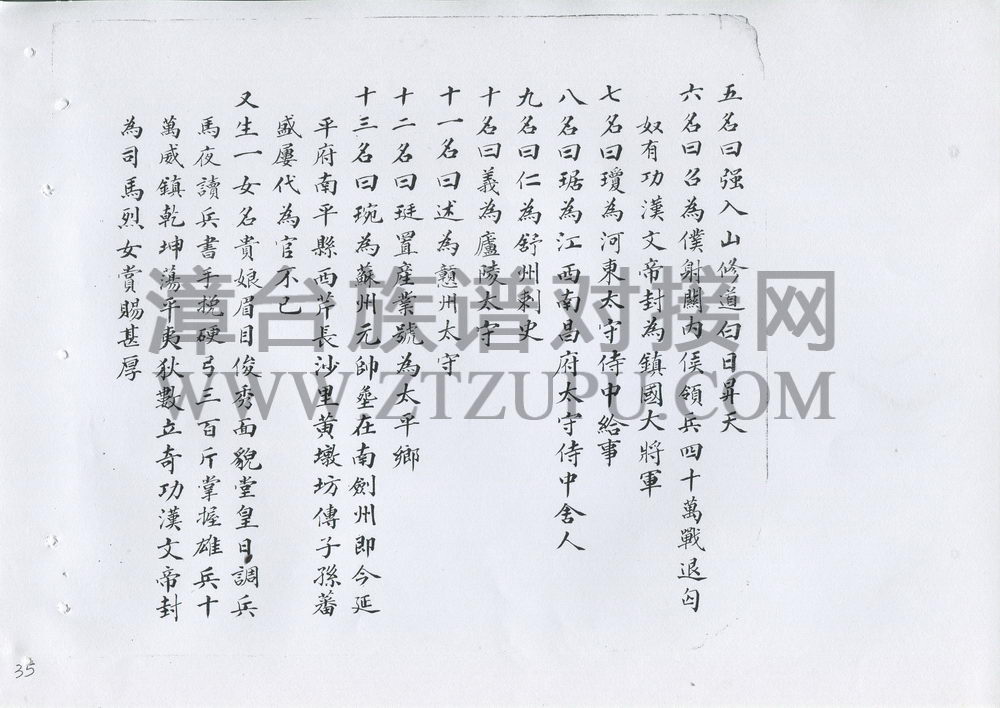 五名曰强入山修道白日昇天
六名曰召為僕射關內侯領兵四十萬戰退匈
奴有功漢文帝封為鎮國大將軍
七名曰瓊為河東太守侍中給事
八名曰琚為江西南昌府太守侍中舍人
九名曰仁為舒州刺史
十名曰義為廬陵太守
十一名曰述為 州太守
十二名曰珽置產業號為太平鄉
十三名曰琬為蘇州元帥塟在南劍州即今延
平府南平縣西芹長沙里黃墩坊傳子孫蕃
盛屢代為官不已
又生一女名貴娘眉目俊秀面貌堂皇日調兵
馬夜讀兵書手挽硬弓三百斤掌握雄兵十
萬威鎮乾坤蕩平夷狄數立奇功漢文帝封
為司馬烈女賞賜甚厚
漳台族谱对接网
WWW.ZTZUPU.COM
35